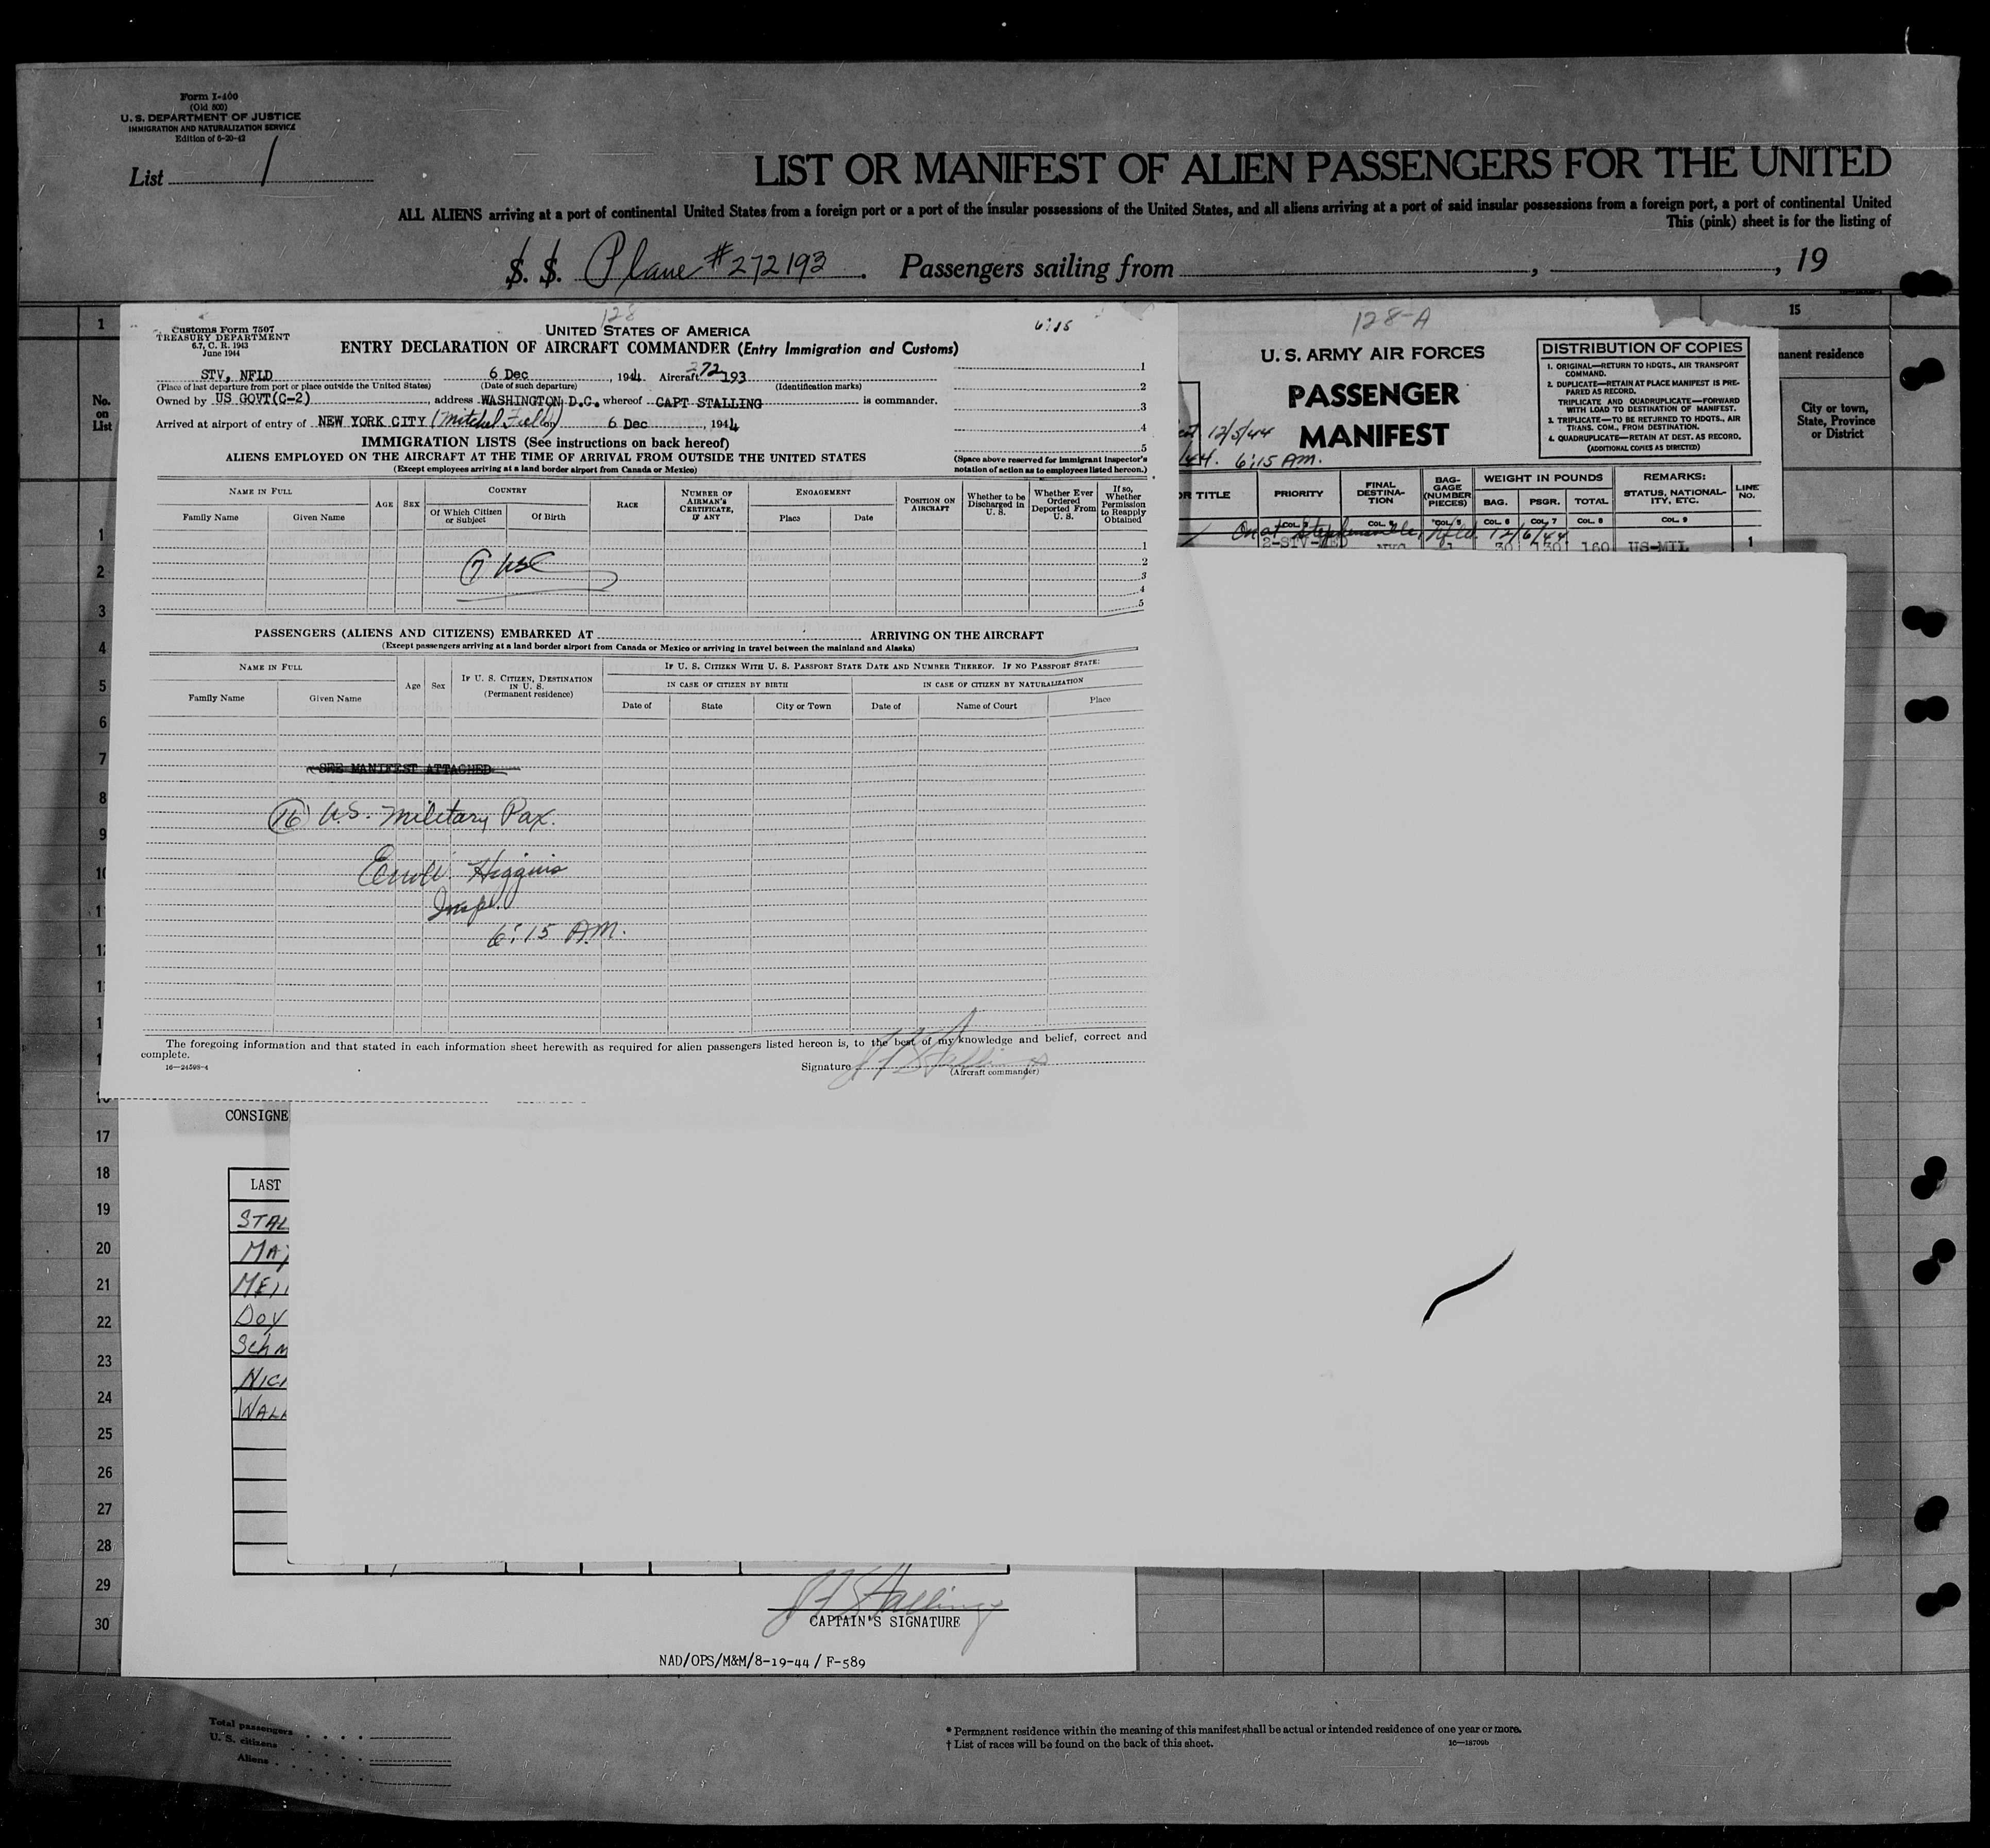 Form I-400
(Old 500)
U. S. DEPARTMENT OF JUSTICE
IMMIGRATION AND NATURALIZATION SERVICE
Edition of 6-20-42
List 1
LIST OR MANIFEST OF ALIEN PASSENGERS FOR THE UNITED
ALL ALIENS arriving at a port of continental United States from a foreign port or a port of the insular possessions of the United States, and all aliens arriving at a port of said insular possessions from a foreign port, a port of continental United
This (pink) sheet is for the listing of
S. S. Plane #272193 Passengers sailing from , , 19
1
15
No. on List
manent residence
City or town, State, Province or District
128
Customs Form 7507
TREASURY DEPARTMENT
6.7, C. R. 1943
June 1944
UNITED STATES OF AMERICA
6:15
ENTRY DECLARATION OF AIRCRAFT COMMANDER (Entry Immigration and Customs)
STV, NFLD 6 Dec , 1944 Aircraft 272193
(Place of last departure from port or place outside the United States) (Date of such departure) (Identification marks)
Owned by US GOVT(C-2) , address WASHINGTON D.C. whereof CAPT STALLING is commander.
Arrived at airport of entry of NEW YORK CITY (Mitchel Field) 6 Dec , 1944
IMMIGRATION LISTS (See instructions on back hereof)
ALIENS EMPLOYED ON THE AIRCRAFT AT THE TIME OF ARRIVAL FROM OUTSIDE THE UNITED STATES
(Except employees arriving at a land border airport from Canada or Mexico)
1
2
3
4
5
(Space above reserved for immigrant inspector's notation of action as to employees listed hereon.)
NAME IN FULL
Family Name Given Name
AGE SEX
COUNTRY
Of Which Citizen or Subject Of Birth
RACE
NUMBER OF AIRMAN'S CERTIFICATE, IF ANY
ENGAGEMENT
Place Date
POSITION ON AIRCRAFT
Whether to be Discharged in U. S.
Whether Ever Ordered Deported From U. S.
If so, Whether Permission to Reapply Obtained
7 USC
1
2
3
4
5
PASSENGERS (ALIENS AND CITIZENS) EMBARKED AT ARRIVING ON THE AIRCRAFT
(Except passengers arriving at a land border airport from Canada or Mexico or arriving in travel between the mainland and Alaska)
NAME IN FULL
Family Name Given Name
Age Sex
IF U. S. CITIZEN, DESTINATION IN U. S. (Permanent residence)
IF U. S. CITIZEN WITH U. S. PASSPORT STATE DATE AND NUMBER THEREOF. IF NO PASSPORT STATE:
IN CASE OF CITIZEN BY BIRTH IN CASE OF CITIZEN BY NATURALIZATION
Date of State City or Town Date of Name of Court Place
SEE MANIFEST ATTACHED
16 U.S. Military Pax.
Higgins
Insp.
6:15 A.M.
The foregoing information and that stated in each information sheet herewith as required for alien passengers listed hereon is, to the best of my knowledge and belief, correct and
complete.
16—24598-4
Signature J F Stallings
(Aircraft commander)
128-A
U. S. ARMY AIR FORCES
PASSENGER
MANIFEST
12/5/44
44. 6:15 AM.
DISTRIBUTION OF COPIES
1. ORIGINAL—RETURN TO HDQTS., AIR TRANSPORT COMMAND.
2. DUPLICATE—RETAIN AT PLACE MANIFEST IS PREPARED AS RECORD.
TRIPLICATE AND QUADRUPLICATE—FORWARD WITH LOAD TO DESTINATION OF MANIFEST.
3. TRIPLICATE—TO BE RETURNED TO HDQTS., AIR TRANS. COM., FROM DESTINATION.
4. QUADRUPLICATE—RETAIN AT DEST. AS RECORD.
(ADDITIONAL COPIES AS DIRECTED)
OR TITLE PRIORITY FINAL DESTINATION BAGGAGE (NUMBER PIECES) WEIGHT IN POUNDS REMARKS: LINE NO.
BAG. PSGR. TOTAL STATUS, NATIONALITY, ETC.
COL. 6 COL. 7 COL. 8 COL. 9
On at Stephenville, Nfld. 12/6/44
2-STV-MED NYC 1 30 130 160 US-MIL 1
1
2
3
4
5
6
7
8
9
10
17
18
19
20
21
22
23
24
25
26
27
28
29
30
CONSIGNE
LAST
STAL
MAY
MEI
DOY
SCHM
NIC
WAL
J F Stallings
CAPTAIN'S SIGNATURE
NAD/OPS/M&M/8-19-44 / F-589
Total passengers
U. S. citizens
Aliens
* Permanent residence within the meaning of this manifest shall be actual or intended residence of one year or more.
† List of races will be found on the back of this sheet.
16—18709b